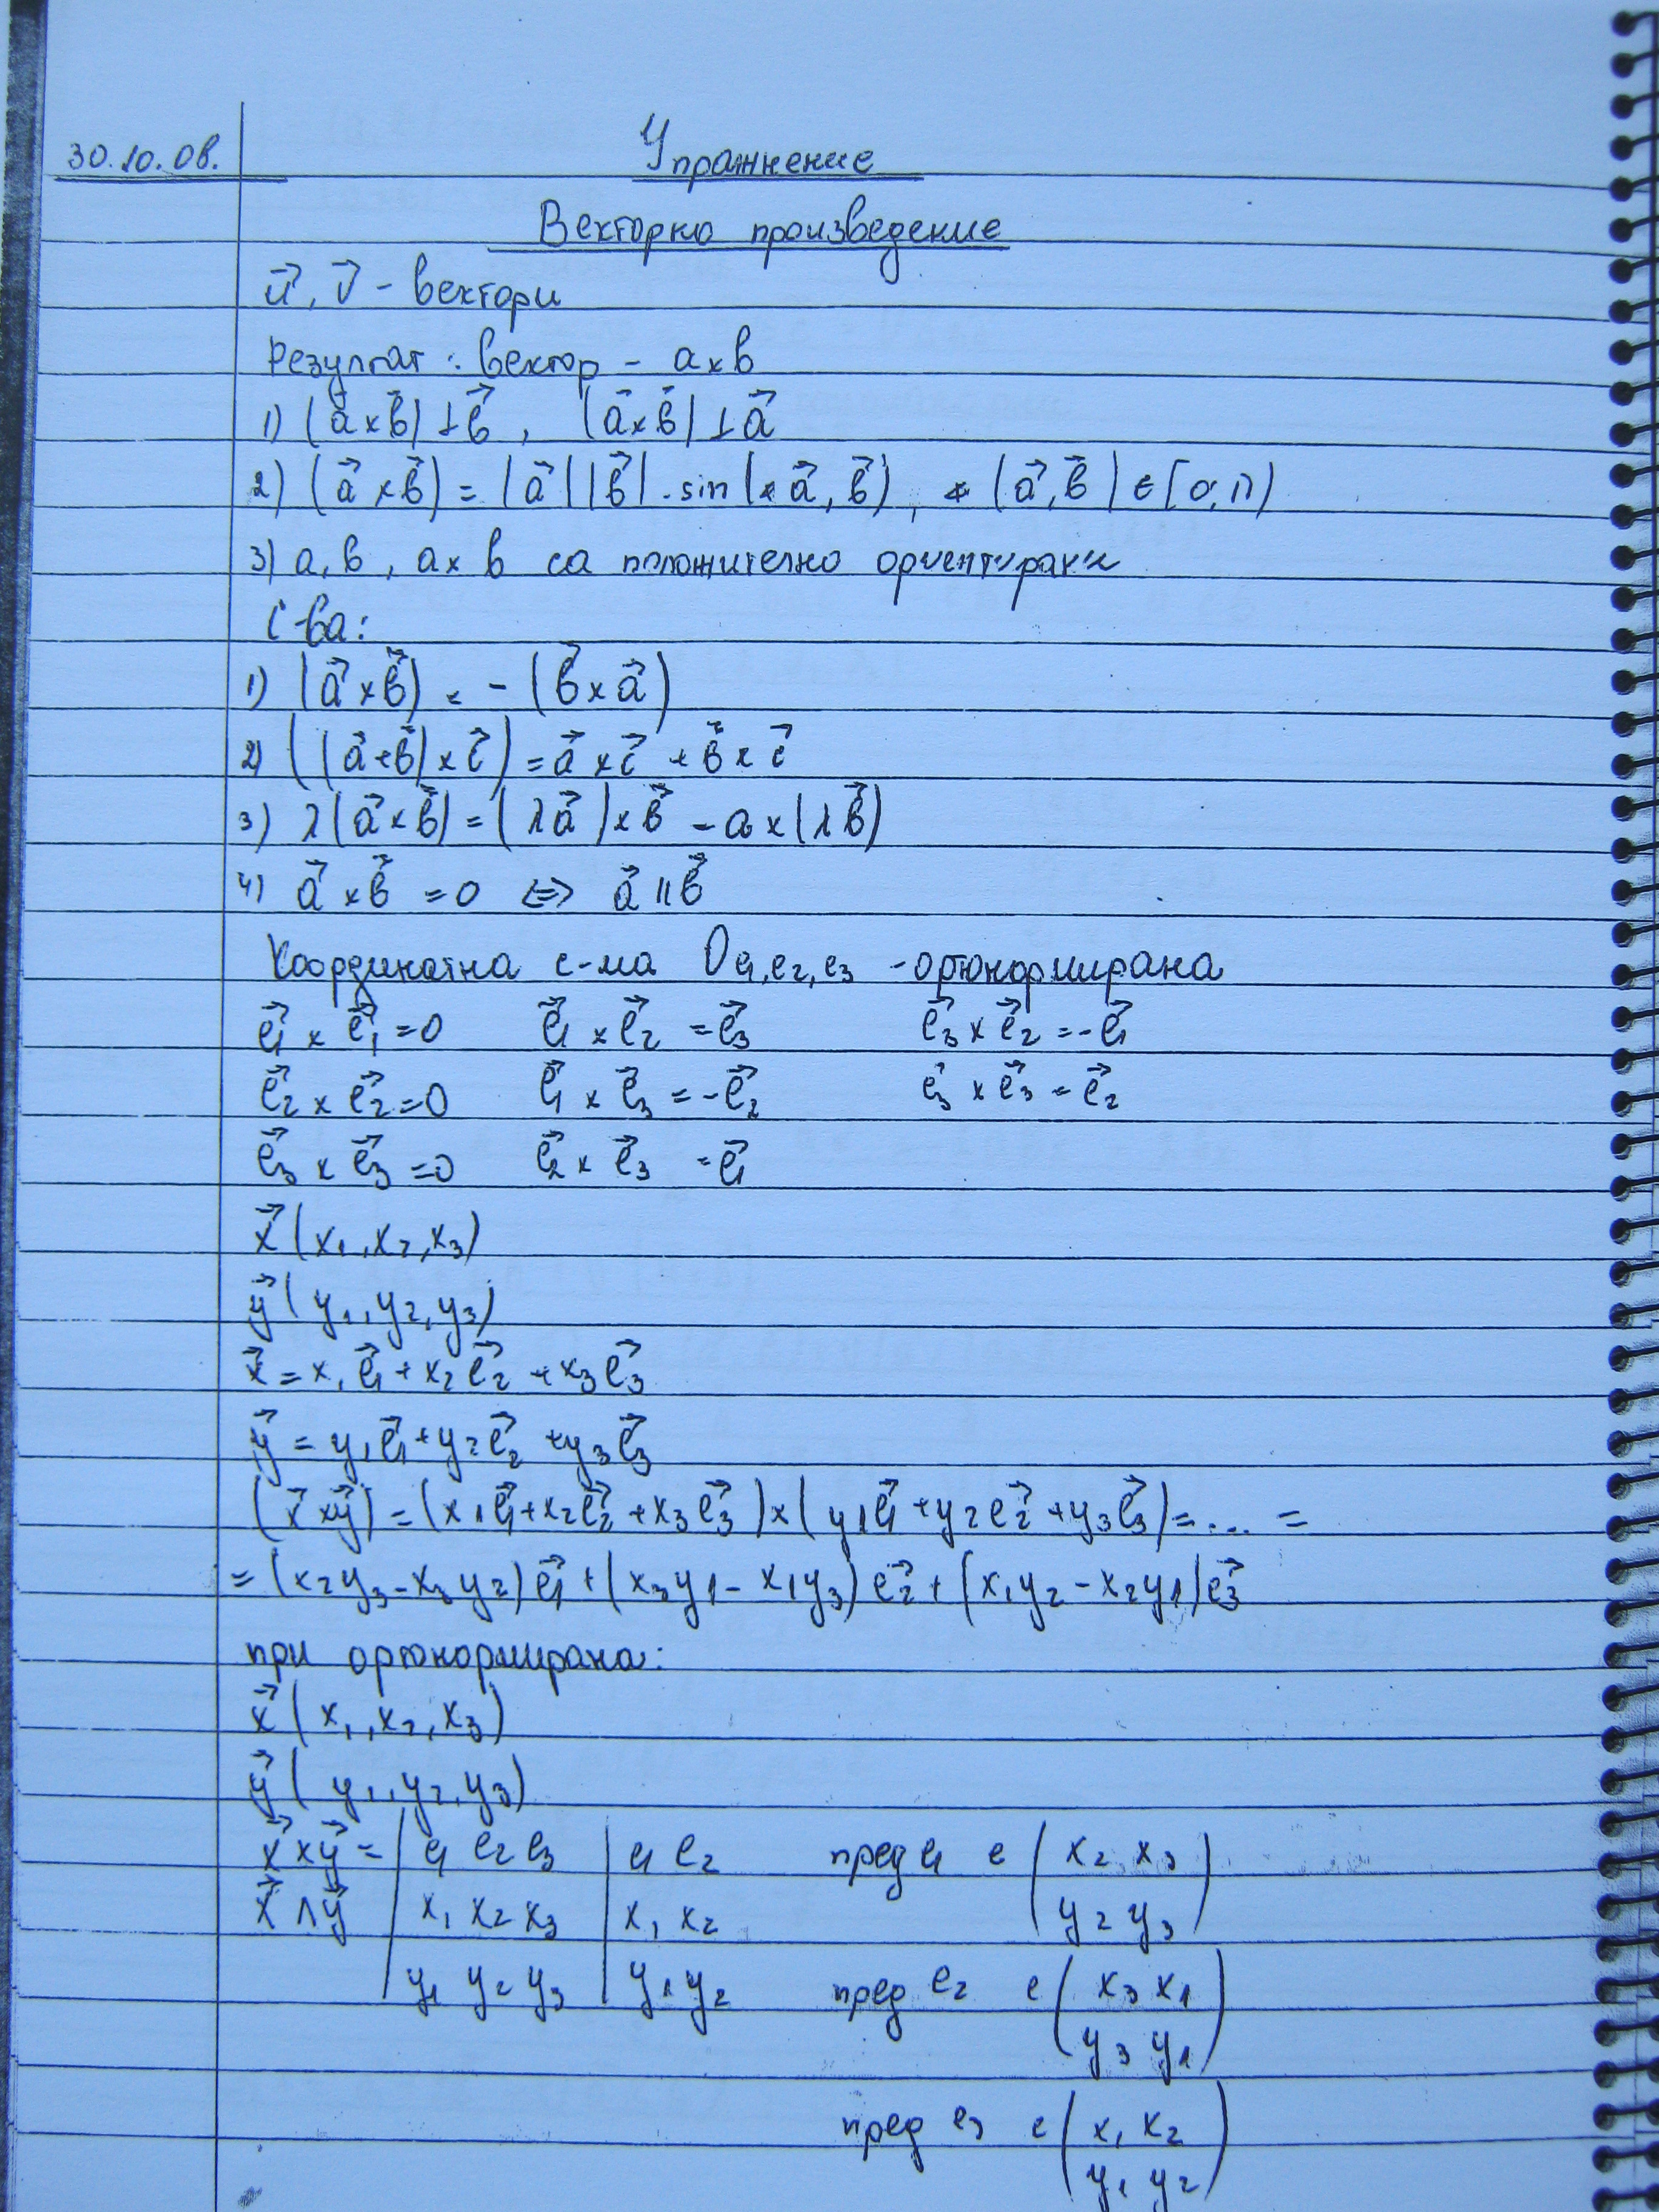 30.10.08.
Упражнение
Векторно произведение
u⃗, v⃗ - вектори
Резултат: вектор - a×b
1) (a⃗×b⃗)⊥b⃗, (a⃗×b⃗)⊥a⃗
2) (a⃗×b⃗) = |a⃗||b⃗|.sin(∢a⃗,b⃗), ∢(a⃗,b⃗)∈[0,π)
3) a, b, a×b са положително ориентирани
С-ва:
1) (a⃗×b⃗) = -(b⃗×a⃗)
2) ((a⃗+b⃗)×c⃗) = a⃗×c⃗ + b⃗×c⃗
3) λ(a⃗×b⃗) = (λa⃗)×b⃗ = a×(λb⃗)
4) a⃗×b⃗ = 0 ⇔ a⃗ || b⃗
Координатна с-ма Oe₁,e₂,e₃ - ортонормирана
e⃗₁×e⃗₁=0 e⃗₁×e⃗₂=e⃗₃ e⃗₃×e⃗₂=-e⃗₁
e⃗₂×e⃗₂=0 e⃗₁×e⃗₃=-e⃗₂ e⃗₃×e⃗₃=e⃗₂
e⃗₃×e⃗₃=0 e⃗₂×e⃗₃=e⃗₁
x⃗(x₁,x₂,x₃)
y⃗(y₁,y₂,y₃)
x⃗=x₁e⃗₁+x₂e⃗₂+x₃e⃗₃
y⃗=y₁e⃗₁+y₂e⃗₂+y₃e⃗₃
(x⃗×y⃗)=(x₁e⃗₁+x₂e⃗₂+x₃e⃗₃)×(y₁e⃗₁+y₂e⃗₂+y₃e⃗₃)=...=
=(x₂y₃-x₃y₂)e⃗₁+(x₃y₁-x₁y₃)e⃗₂+(x₁y₂-x₂y₁)e⃗₃
при ортонормирана:
x⃗(x₁,x₂,x₃)
y⃗(y₁,y₂,y₃)
x⃗×y⃗= | e₁ e₂ e₃ | e₁ e₂ пред e₁ е ( x₂ x₃
x⃗∧y⃗ | x₁ x₂ x₃ | x₁ x₂ y₂ y₃ )
| y₁ y₂ y₃ | y₁ y₂ пред e₂ е ( x₃ x₁
y₃ y₁ )
пред e₃ е ( x₁ x₂
y₁ y₂ )